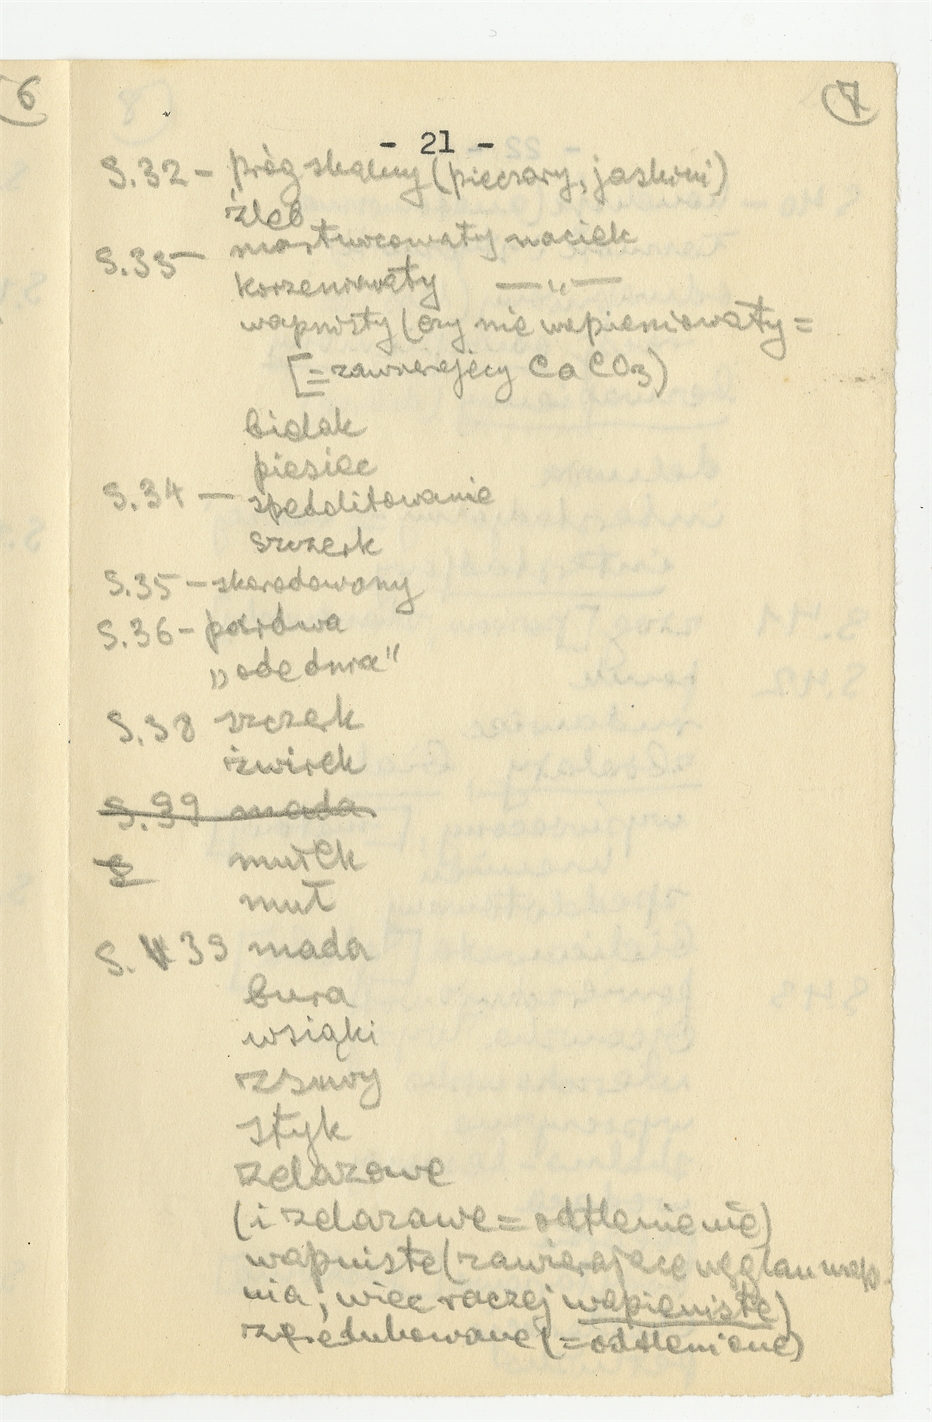 6
7
- 21 -
S.32 - próg skalny (pieczary, jaskini)
żleb
S.33 - naciek
korzeniowaty —"—
wapnisty (czy nie wapieniowaty =
[= zawierający CaCO3)
bielak
piesiec
S.34 — spedolitowanie
szczerk
S.35 - skorodowany
S.36 - pardwa
„odednia"
S.38 szczerk
żwirek
S.39 mada
S
mułek
muł
S. 39 mada
bura
wsiąki
styk
żelazowe
(i żelazawe = odtlenienie)
wapniste (zawierające węglan wap-
nia, więc raczej wapieniste)
zredukowane (= odtlenione)